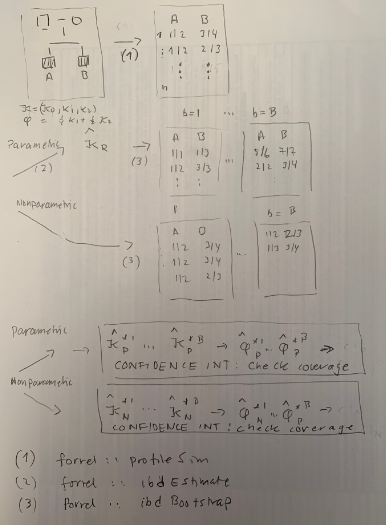 A B
A B
1 1/2 3/4
: 1/2 2/3
n
(1)
K = (K0, K1, K2)
φ = ¼ K1 + ½ K2
b=1 ... b=B
Parametric
K̂R
(2)
(3)
A B
1/1 1/3
1/2 3/3
...
A B
5/6 7/7
2/2 3/4
Nonparametric
(3)
A
1/2 3/4
1/2 3/4
1/2 2/3
...
b = B
1/2 2/3
1/3 3/4
Parametric
K̂P*1 ... K̂P*B → φ̂P*1 .. φ̂P*B
CONFIDENCE INT: Check coverage
Nonparametric
K̂N*1 ... K̂N*B → φ̂N*1 .. φ̂P*B →
CONFIDENCE INT: Check coverage
(1) forrel :: profileSim
(2) forrel :: ibdEstimate
(3) forrel :: ibdBootstrap